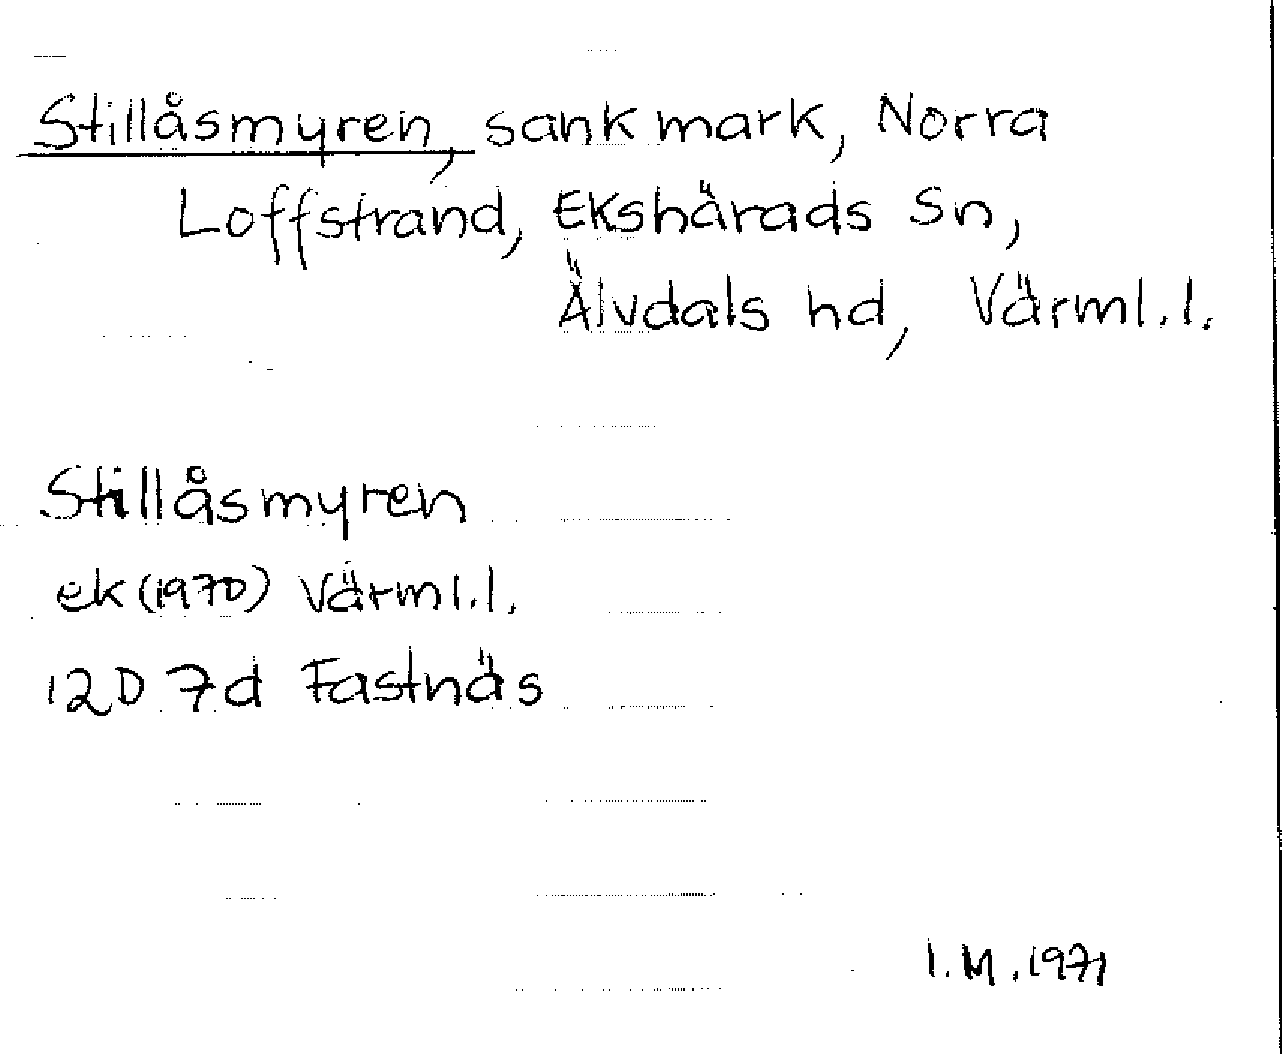 Stillåsmyren, sank mark, Norra
Loffstrand, Ekshärads Sn,
Älvdals hd, Värml.l.
Stillåsmyren
ek (1970) Värml.l.
12D 7d Fastnäs
I.M. 1971